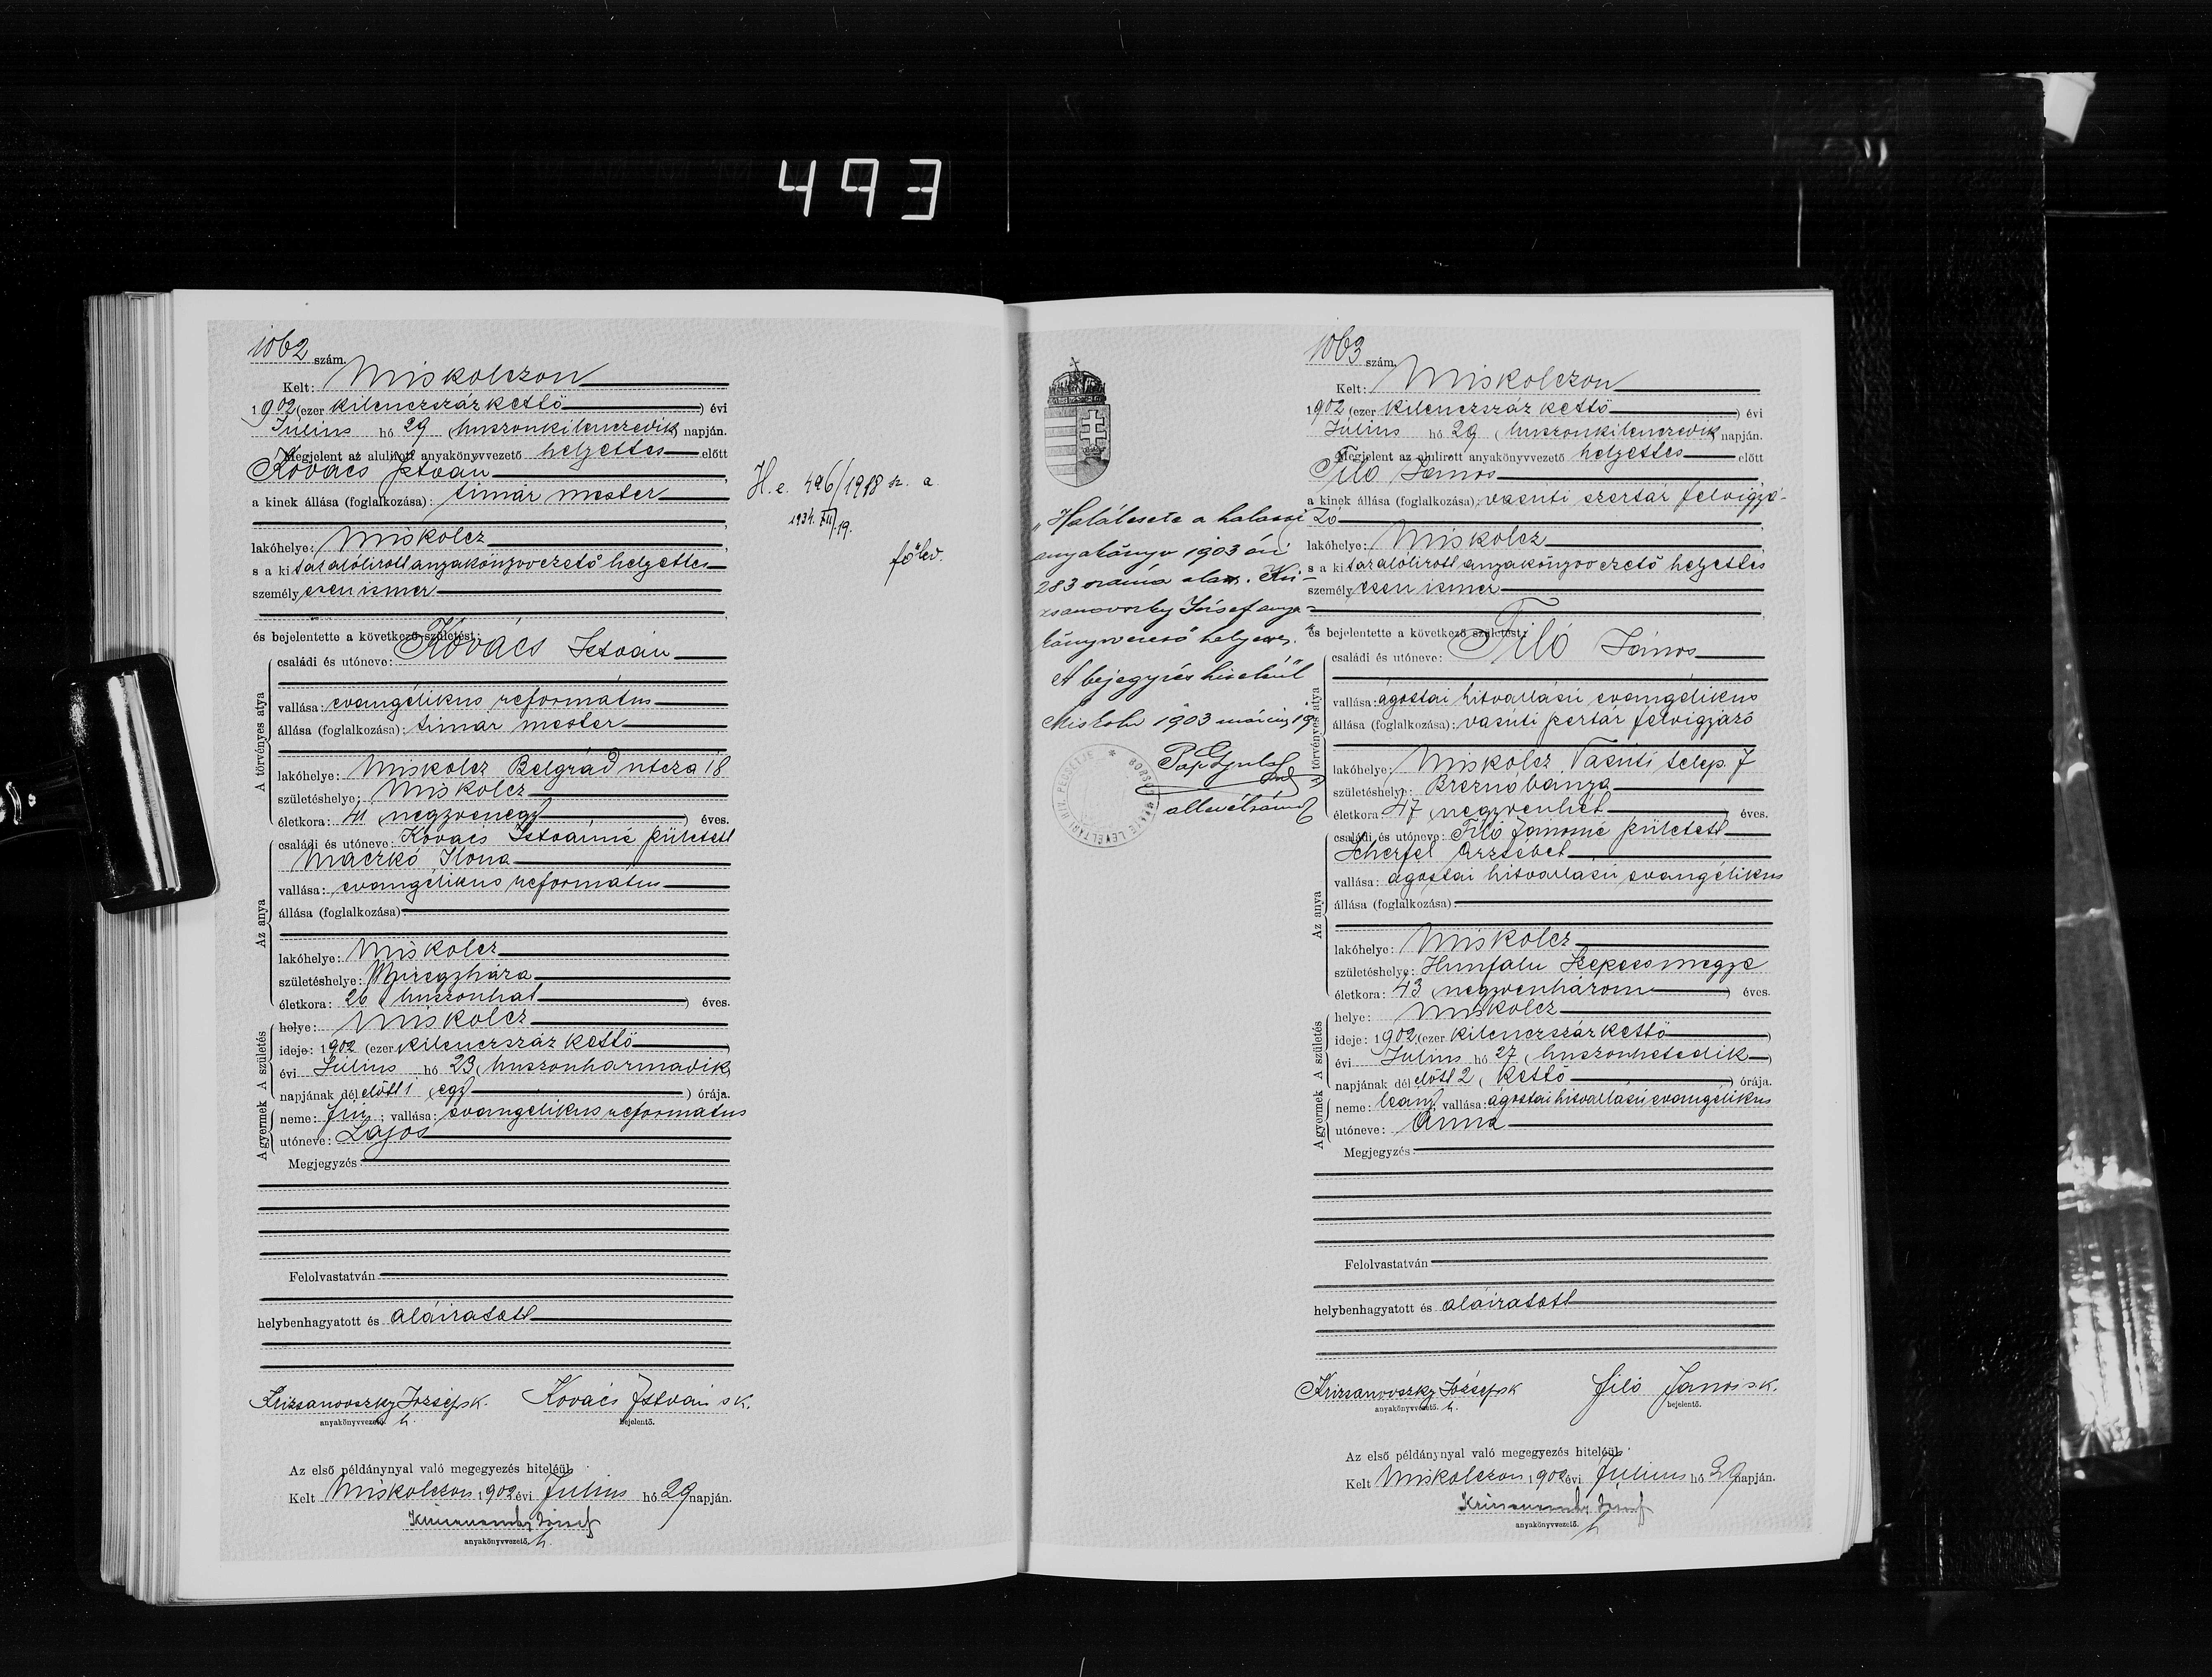 493
1062 szám.
Kelt: Miskolczon
1902 (ezer kilenczszáz kettő) évi
Julius hó 29 (huszonkilenczedik) napján.
Megjelent az alulirott anyakönyvvezető helyettes előtt
Kovács István
a kinek állása (foglalkozása): timár mester
lakóhelye: Miskolcz
s a kit az alólirott anyakönyvvezető helyettes
személyesen ismer
és bejelentette a következő születést:
A törvényes atya
családi és utóneve: Kovács István
vallása: evangélikus református
állása (foglalkozása): timár mester
lakóhelye: Miskolcz Belgrád utcza 18
születéshelye: Miskolcz
életkora: 41 (negyvenegy) éves.
Az anya
családi és utóneve: Kovács Istvánné született
Maczkó Ilona
vallása: evangélikus református
állása (foglalkozása):
lakóhelye: Miskolcz
születéshelye:
életkora: 26 (huszonhat) éves.
A születés
helye: Miskolcz
ideje: 1902 (ezer kilenczszáz kettő)
évi Július hó 23 (huszonharmadik)
napjának dél előtt 1 (egy) órája.
A gyermek
neme: fiú; vallása: evangelikus református
utóneve: Lajos
Megjegyzés
Felolvastatván
helybenhagyatott és aláiratott
Krizsanovszky József sk. Kovács István sk.
anyakönyvvezető h. bejelentő.
Az első példánynyal való megegyezés hiteléül
Kelt Miskolczon 1902 évi Julius hó 29 napján.
Krizsanovszky József
anyakönyvvezető. h.
H. e. 496/1918 sz. a
1934. XII. 19.
főlev.
„Halálesete a halotti
anyakönyv 1903 évi
283 száma alatt. Kri-
zsanovszky József anya-
könyvvezető helyettes.“
A bejegyzés hiteléül
Miskolcz 1903 márcz 19
Pap Gyula
allevéltárnok
1063 szám.
Kelt: Miskolczon
1902 (ezer kilenczszáz kettő) évi
Julius hó 29 (huszonkilenczedik) napján.
Megjelent az alulirott anyakönyvvezető helyettes előtt
Filó János
a kinek állása (foglalkozása): vasúti szertár felvigyá-
zó
lakóhelye: Miskolcz
s a kit az alólirott anyakönyvvezető helyettes
személyesen ismer
és bejelentette a következő születést:
A törvényes atya
családi és utóneve: Filó János
vallása: ágostai hitvallású evangélikus
állása (foglalkozása): vasúti szertár felvigyázó
lakóhelye: Miskolcz Vasúti telep. 7
születéshelye: Breznóbánya
életkora: 47 (negyvenhét) éves.
Az anya
családi és utóneve: Filó Jánosné született
Scherfel Erzsébet
vallása: ágostai hitvallású evangélikus
állása (foglalkozása):
lakóhelye: Miskolcz
születéshelye: Hunfalu Szepesmegye
életkora: 43 (negyvenhárom) éves.
A születés
helye: Miskolcz
ideje: 1902 (ezer kilenczszáz kettő)
évi Julius hó 27 (huszonhetedik)
napjának dél előtt 2 (kettő) órája.
A gyermek
neme: leány; vallása: ágostai hitvallású evangélikus
utóneve: Anna
Megjegyzés
Felolvastatván
helybenhagyatott és aláiratott
Krizsanovszky József sk Filó János sk.
anyakönyvvezető. h. bejelentő.
Az első példánynyal való megegyezés hiteléül
Kelt Miskolczon 1902 évi Julius hó 29 napján.
Krizsanovszky József
anyakönyvvezető. h